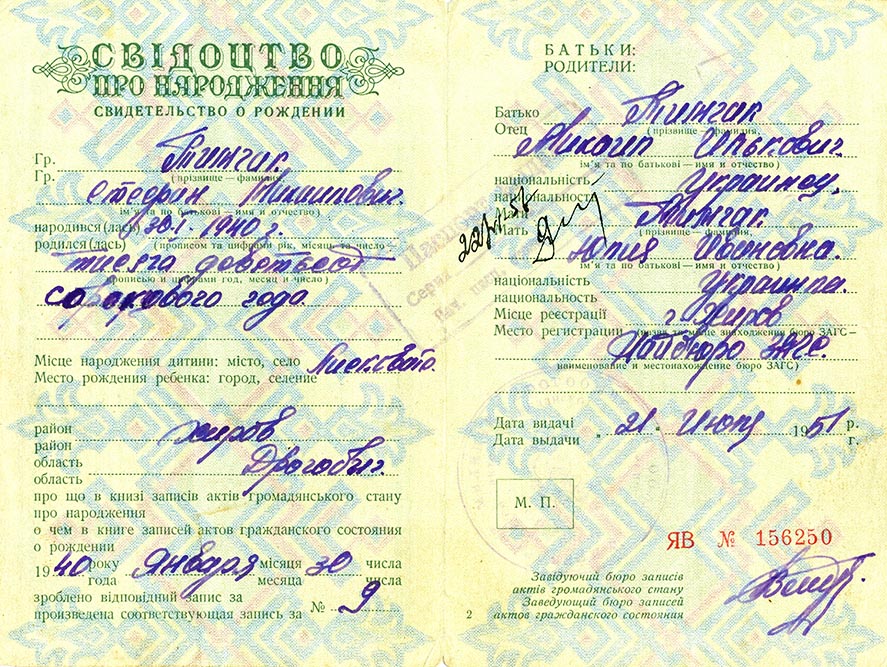 СВІДОЦТВО
ПРО НАРОДЖЕННЯ
СВИДЕТЕЛЬСТВО О РОЖДЕНИИ
Гр.
Гр. Тимчак
(прізвище — фамилия)
Стефан Михайлович.
ім'я та по батькові — имя и отчество)
народився (лась) 30.I. 1940 г.
родился(лась) (прописом та цифрами рік, місяць та число —
тысяча девятьсот
прописью и цифрами год, месяц и число)
сорокового года
Місце народження дитини: місто, село
Место рождения ребенка: город, селение
район
район Хиров
область
область Дрогобич.
про що в книзі записів актів громадянського стану
про народження
о чем в книге записей актов гражданского состояния
о рождении
1940 року января місяця 30 числа
года месяца числа
зроблено відповідний запис за
произведена соответствующая запись за № 9
БАТЬКИ:
РОДИТЕЛИ:
Батько
Отец Тимчак
(прізвище — фамилия,
Михаил Илькович.
ім'я та по батькові — имя и отчество)
національність
национальность украинец,
Мать Тимчак.
(прізвище — фамилия,
Юлия Ивановна.
ім'я та по батькові — имя и отчество)
національність
национальность украинка.
Місце реєстрації г. Хиров
Место регистрации (назва та місце знаходження бюро ЗАГС—
ЗАГС.
наименование и местонахождение бюро ЗАГС)
Дата видачі
Дата выдачи " 21 " Июля 1951 р.
г.
М. П.
ЯВ № 156250
Завідуючий бюро записів
актів громадянського стану
Заведующий бюро записей
актов гражданского состояния
2